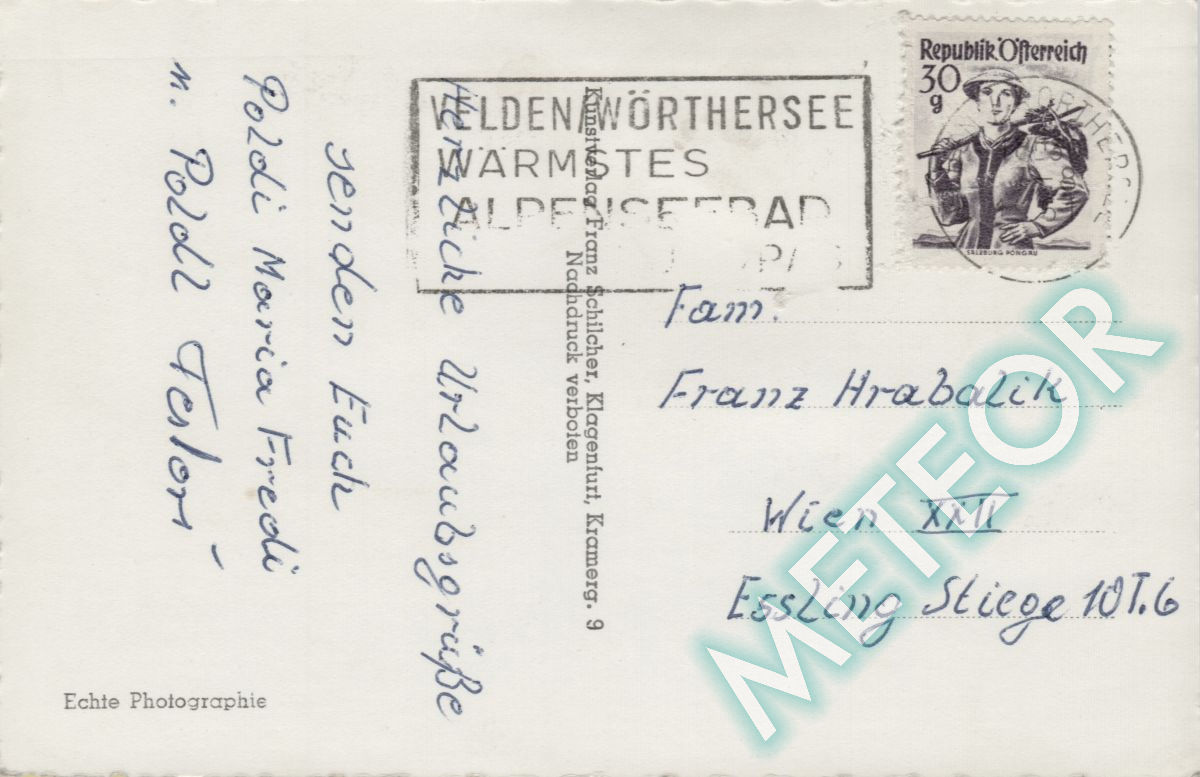 Herzliche Urlaubsgrüße
senden Euch
Poldi Maria Fredi
u. Poldl
Kunstverlag Franz Schilcher, Klagenfurt, Kramerg. 9
Nachdruck verboten
Echte Photographie
VELDEN/WÖRTHERSEE
WÄRMSTES
ALPENSEEBAD
Republik Österreich
30
g
SALZBURG PONGAU
Fam.
Franz Hrabalik
Wien XXII
Essling Stiege 10 T. 6
METEOR